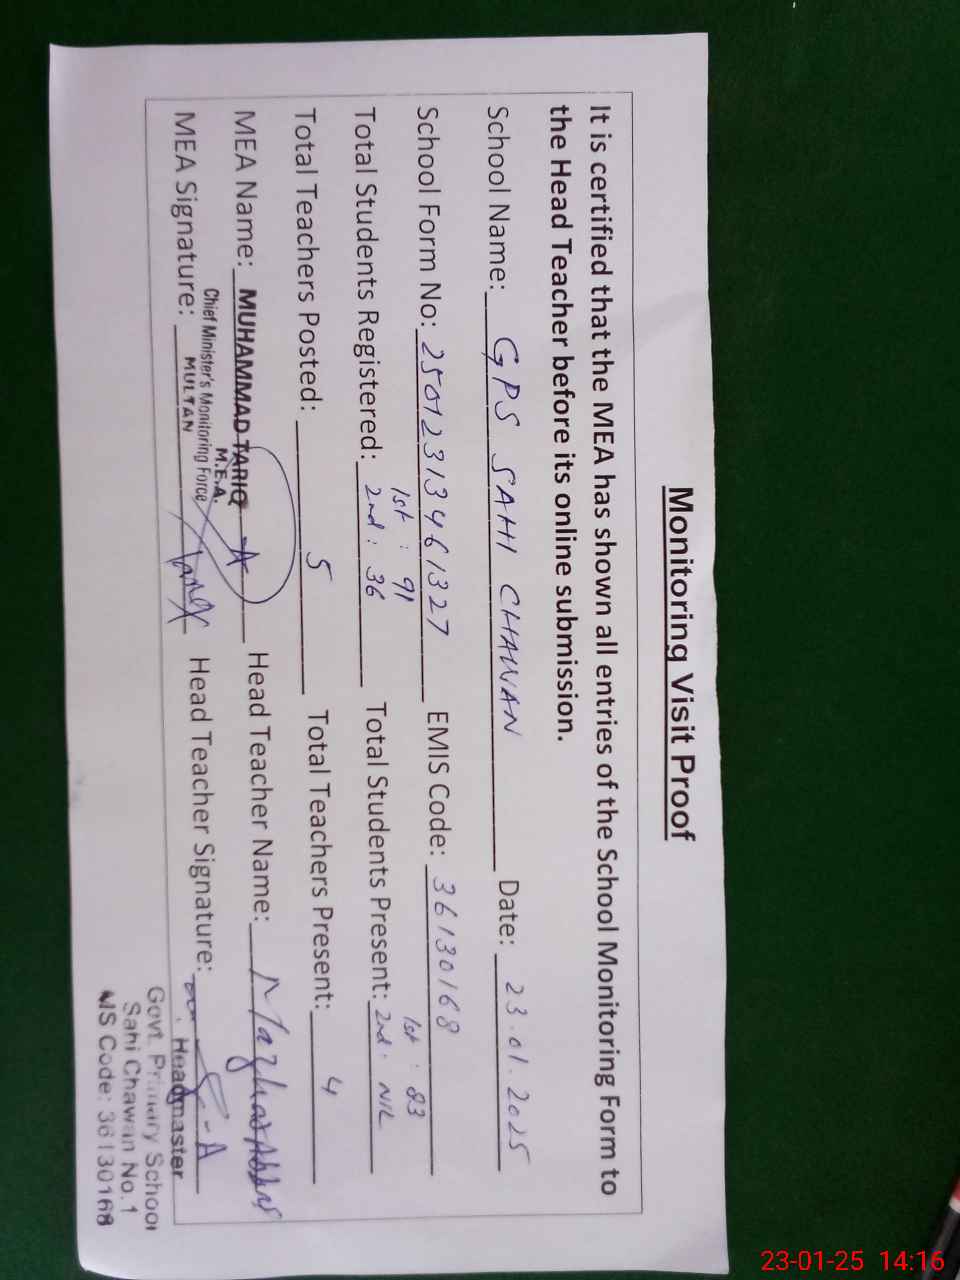 Monitoring Visit Proof
It is certified that the MEA has shown all entries of the School Monitoring Form to
the Head Teacher before its online submission.
School Name: GPS SAHI CHAWAN Date: 23.01.2025
School Form No: 25012313461327 EMIS Code: 36130168
1st : 91 1st : 83
Total Students Registered: 2nd : 36 Total Students Present: 2nd : NIL
Total Teachers Posted: 5 Total Teachers Present: 4
MEA Name: MUHAMMAD TARIQ Head Teacher Name: Mazhar Abbas
M.E.A.
Chief Minister's Monitoring Force
MEA Signature: MULTAN Head Teacher Signature:
Headmaster
Govt. Primary School
Sahi Chawan No.1
MIS Code: 36130168
23-01-25 14:16